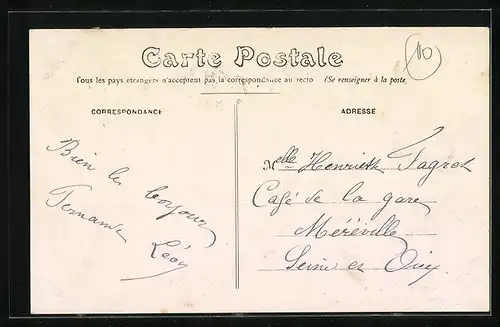 Carte Postale
10
Tous les pays etrangers n'acceptent pas la correspondance au recto (Se renseigner à la poste
CORRESPONDANCE
Bien le bonjour
Fernande
Léon
ADRESSE
Melle Henriette Fagrot
Café de la gare
Méréville
Seine et Oise